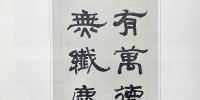 有萬德
無纖塵